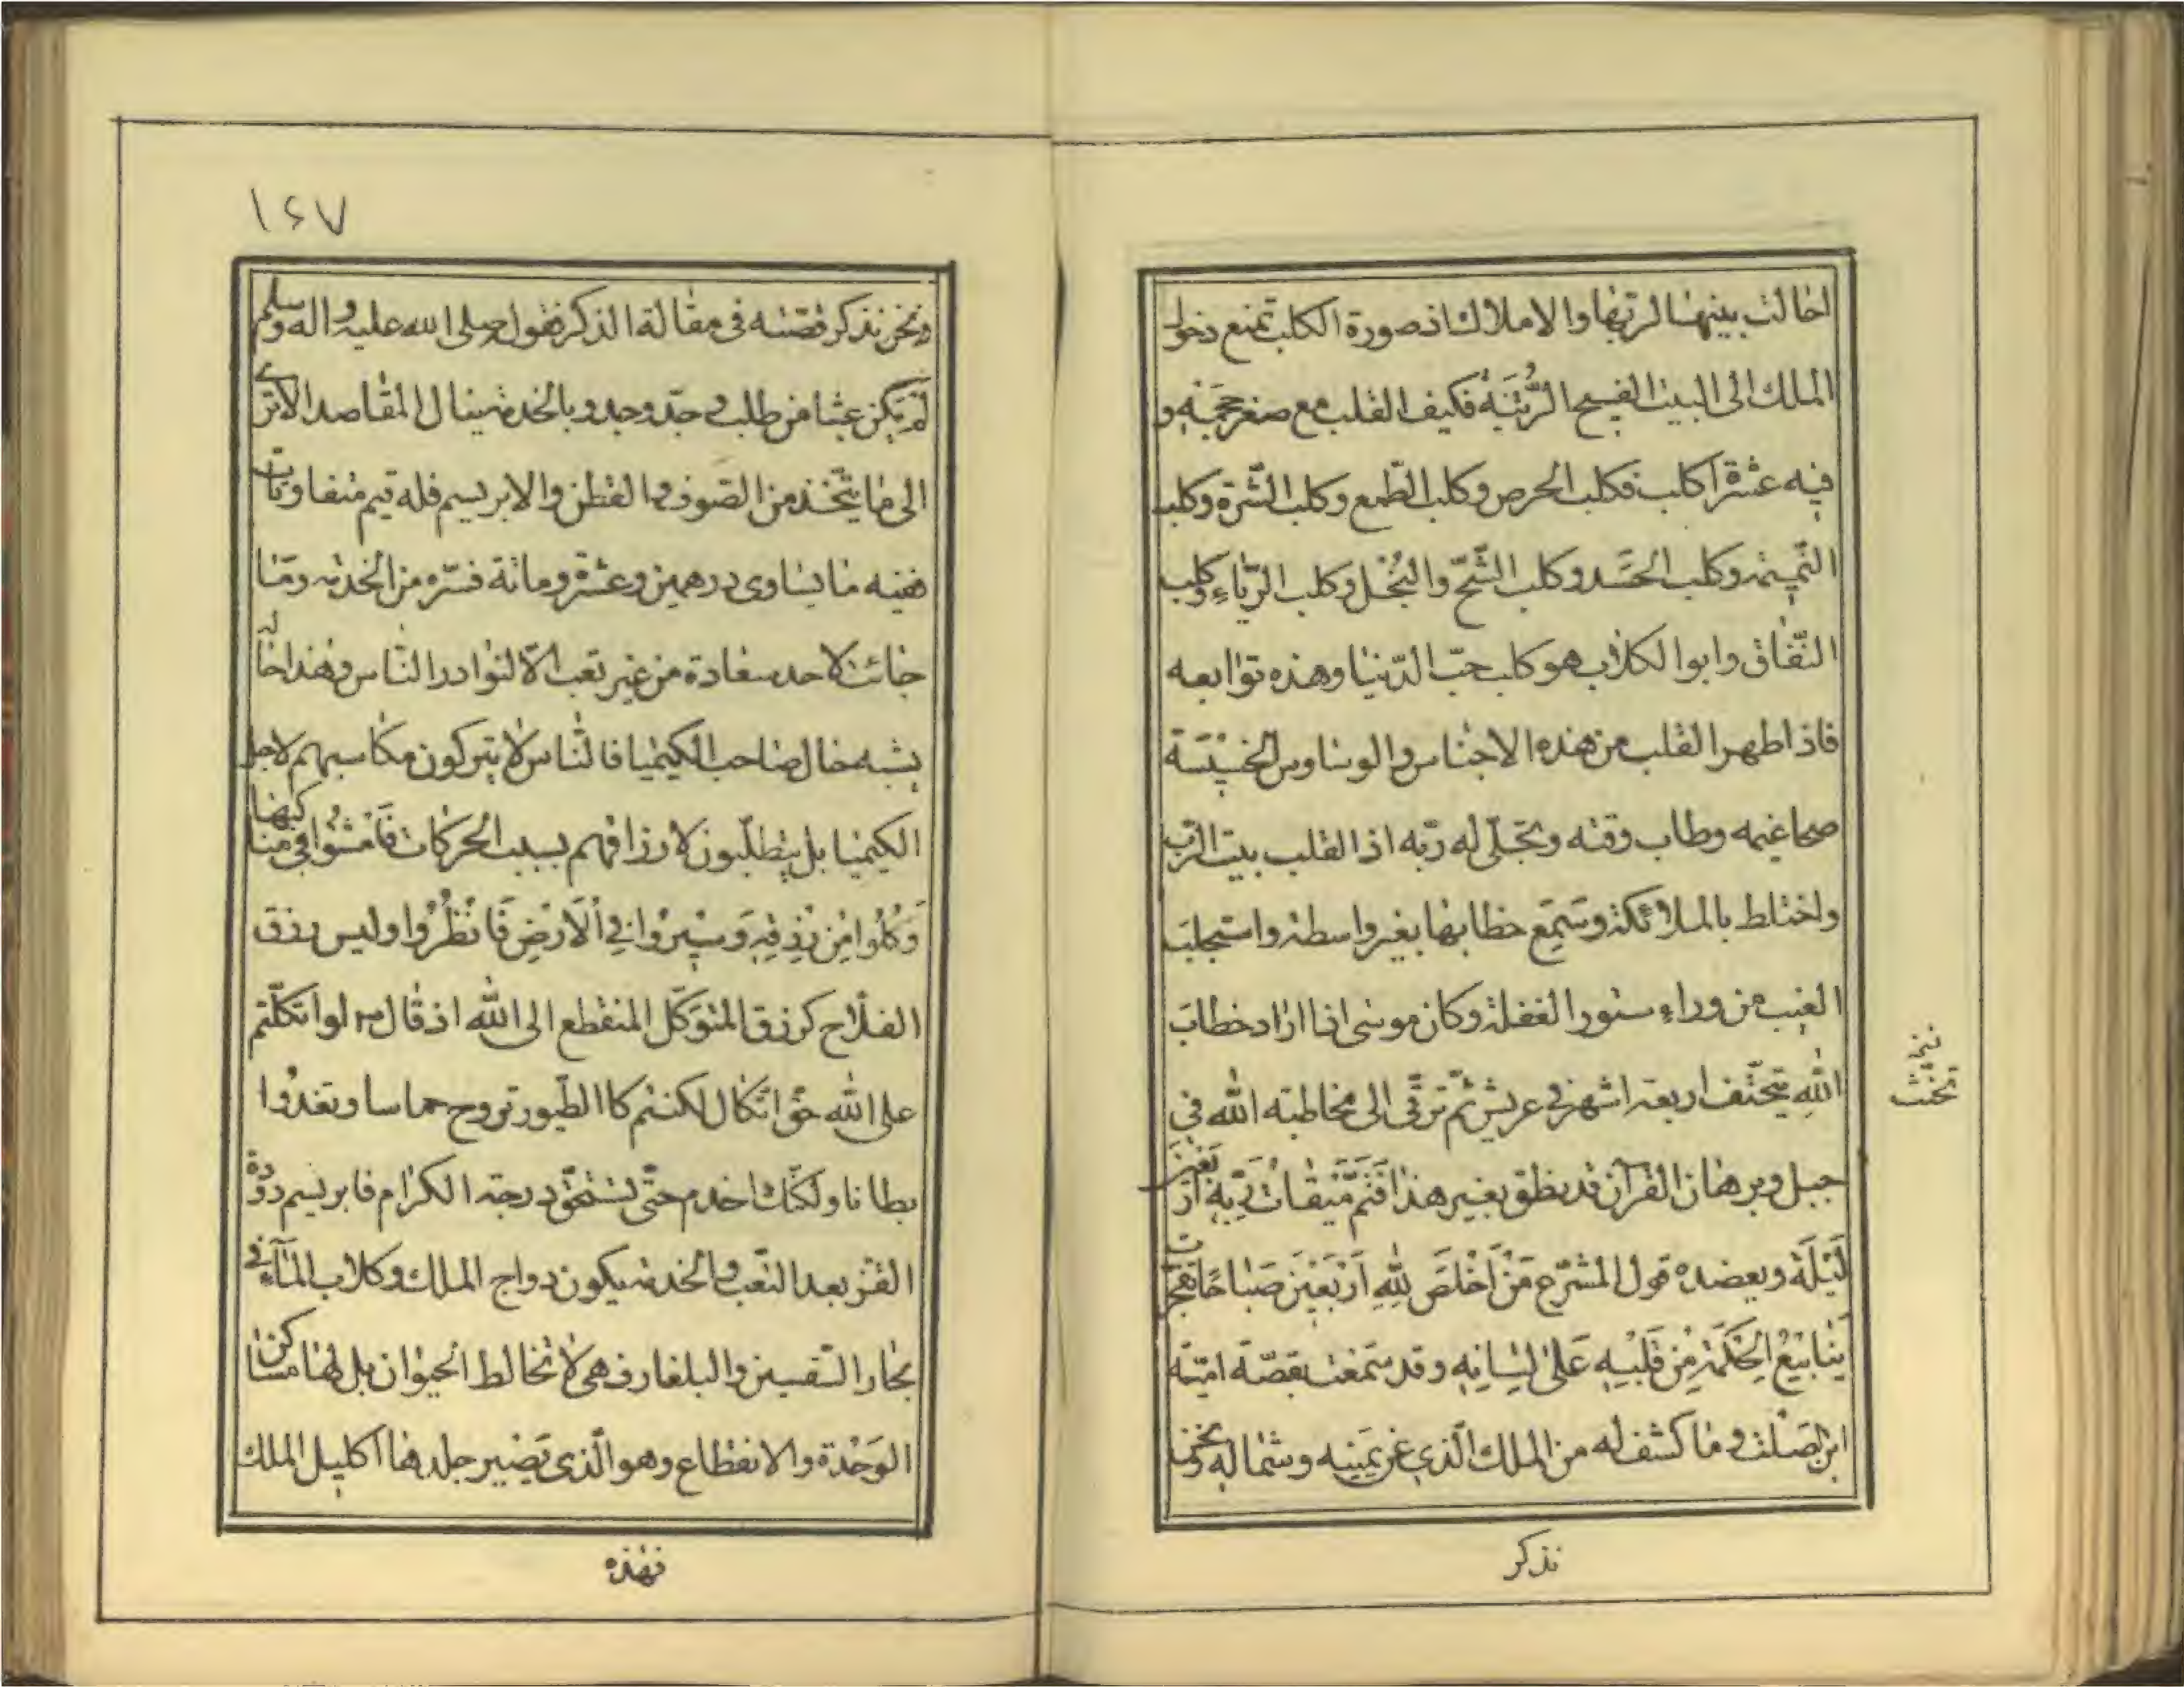 احالت بينها لرتبها والاملاك اذ صورة الكلب تمنع دخول
الملك الى البيت الفسيح الرُّتبَة فكيف القلب مع صغر حجمه و
فيه عشرة اكلب فكلب الحرص وكلب الطّمع وكلب الشّره وكلب
النّميمة وكلب الحَسَد وكلب الشّحّ والبُخْل وكلب الرّياءِ وكلب
النّفاق وابوا لكلاب هو كلب حبّ الدّنيا وهذه توابعه
فاذا طهر القلب من هذه الاجناس والوساوس الخسيسَة
صحا غيمه وطاب وقته وتجلّى له ربّه اذا القلب بيت الرّب
واختلط بالملائكة وسَمِع خطابها بغير واسطة واستجلبَ
الغيب من وراءِ ستور الغفلة وكان موسى اذا اراد خطابَ
اللّٰه يتحنّف اربعة اشهر في عريش ثمّ ترقّى الى مخاطبته اللّٰه في
جبل وبرهان القرآن قد نطق بغير هذا فَتَمَّ مِّيقَاتُ رَبِّهِ اَرْبَعِينَ
لَيْلَةً ويعضده قول المشرّع مَنْ اَخْلَصَ لِلّٰهِ اَرْبَعِيْنَ صَبَاحًا تفجّرت
يَنَابِيْعُ الْحِكْمَةِ مِنْ قَلْبِهِ عَلىٰ لِسَانِهِ وقد سَمِعْتَ بقصّة اميّة
ابن الصَلْت وما كشف له من الملك الّذي عن يَمينه وشماله ونحن
تحنث
نذكر
١٤٧
ونحن نذكر قصّته في مقالة الذكر فقول صلى الله عليه واله وسلم
لَمْ يَكن عبثا من طلب وجدّ وجد وبالخدمة ينال المقاصد الا ترى
الى ما يتّخذ من الصّوف والقطن والابريسم فله قيم متفاوتات
ففيه ما يساوى درهمين وعشرة ومائة فسّره من الخدمة وما
جائت لاحد سعادة من غير تعب الّا لنوادر النّاس وهذا حاله
يشبه حال صاحب الكيميا فالنّاس لا يتركون مكاسبهم لاجل
الكيميا بل يتطلّبون لارزاقهم بسبب الحركات فَامْشُوا في مناكبها
وَكُلُوا مِنْ رِزْقِهِ وَسِيْرُوا فِي الْاَرْضِ فَانْظُرُوا وليس رزق
الفلّاح كرزق المتوكّل المنقطع الى اللّٰه اذ قال م لو اتكلتم
على اللّٰه حقّ اتّكال لكنتم كا الطّيور تروح خماسا وتغدُوا
بطانا ولكنّك اخدم حتّى تستحقّ درجة الكرام فابريسم دودة
القزّ بعد التّعب والخدمة يكون دواج الملك وكلاب المآءِ في
بحار التّقسين والبلغار فهى لا تخالط الحيوان بل لها مساكن
الوَحْدة والانقطاع وهو الّذى يَصير جلدها اكليل الملك
فهذه